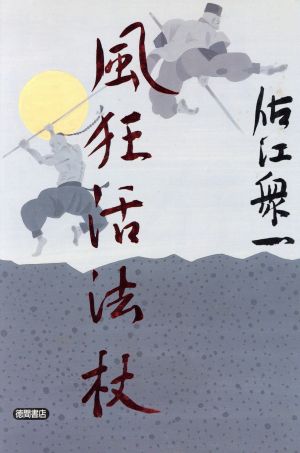 風狂活法杖
佐江衆一
徳間書店